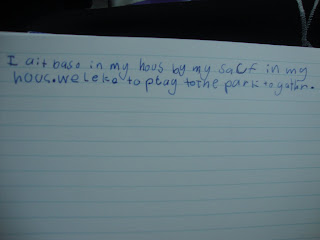 I ait base in my hous by my saCF in my
hous.we leke to ptay to the park togathn.